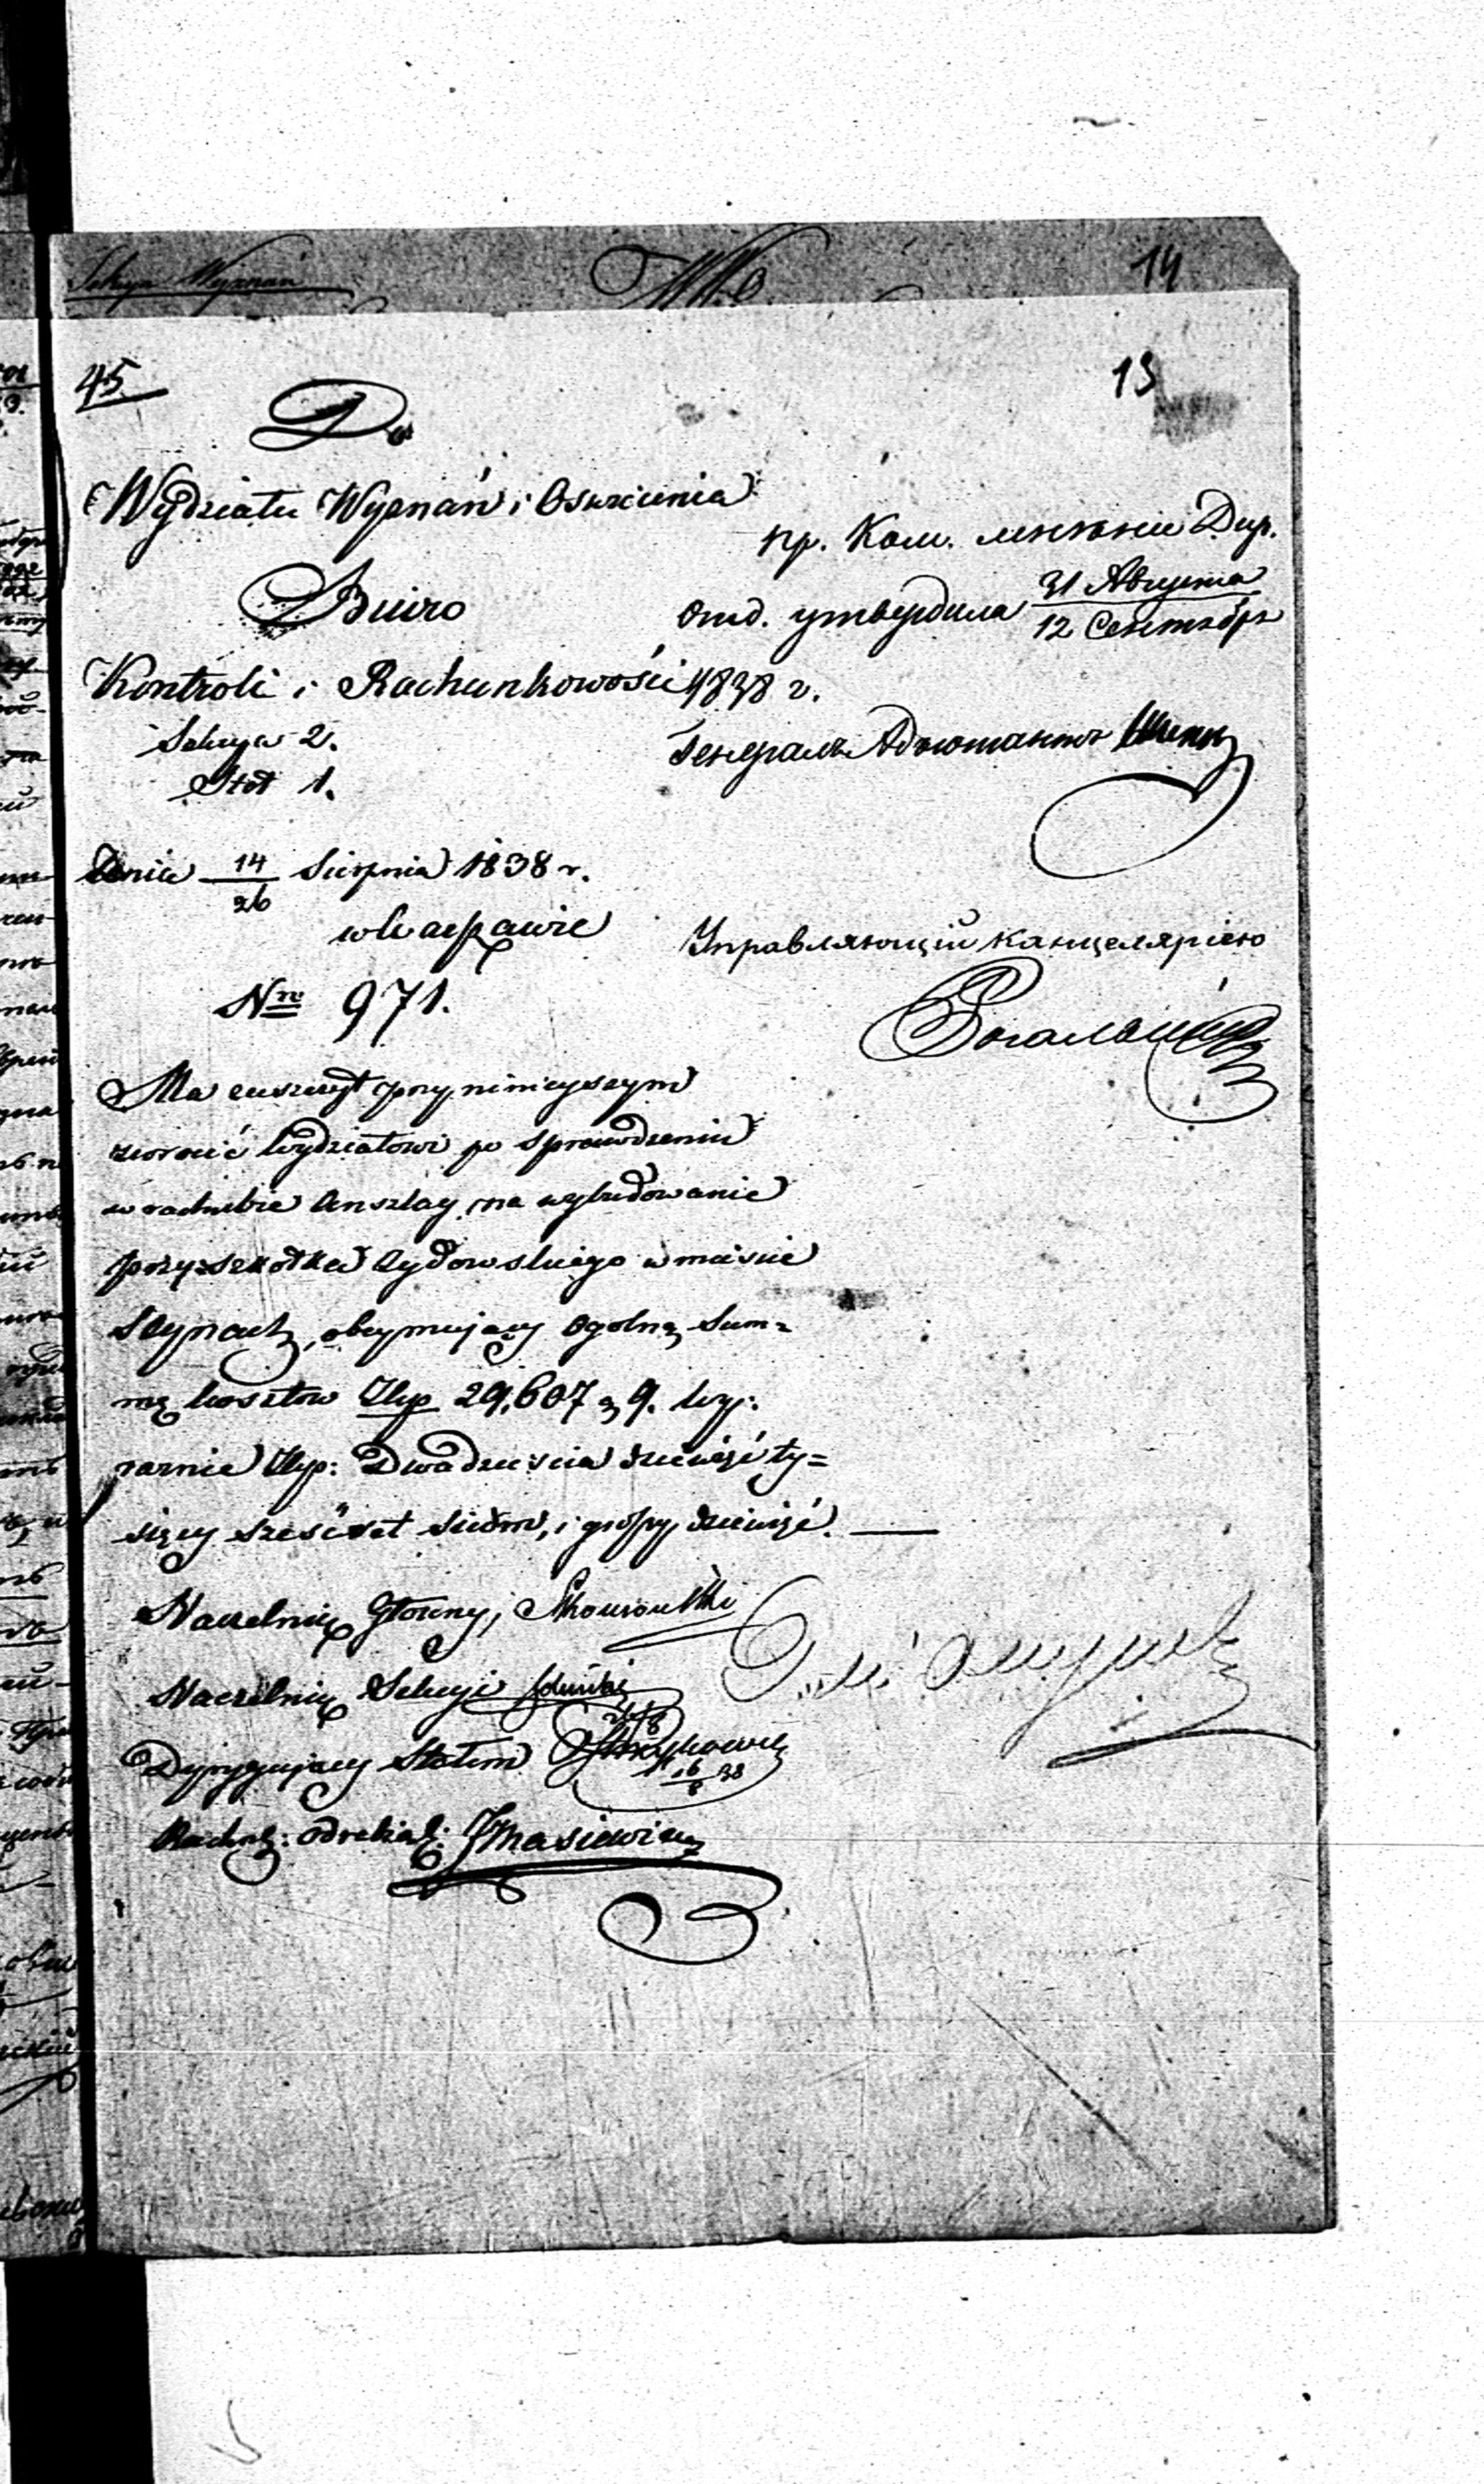 Sekcya Wyznań
14
45
13
Do
Wydziału Wyznań i Oswiecenia
Biuro
Kontroli i Rachunkowości
Sekcya 2.
Stół 1.
Dnia 14/26 Sierpnia 1838 r.
w Warszawie
Nro 971.
Ma zaszczyt przy niniejszym
zwrócić Wydziałowi po sprawdzeniu
w rachubie Anszlag na wybudowanie
przyszkółka Żydowskiego w mieście
obeymujący ogolną Sum=
mę kosztow Złp 29,607 g 9. wy:
raznie Złp: Dwadzieścia dziewięć ty=
sięcy sześćset siedm, i groszy dziewięć.
Naczelnik Główny,
Naczelnik Sekcyi
Dyrygujący Stołem
16/8 38
Пр. Ком. мнѣніе Дир.
Отд. утвердила 31 Августа/12 Сентября
1838 г.
Генералъ Адъютантъ
Управляющій Канцеляріею